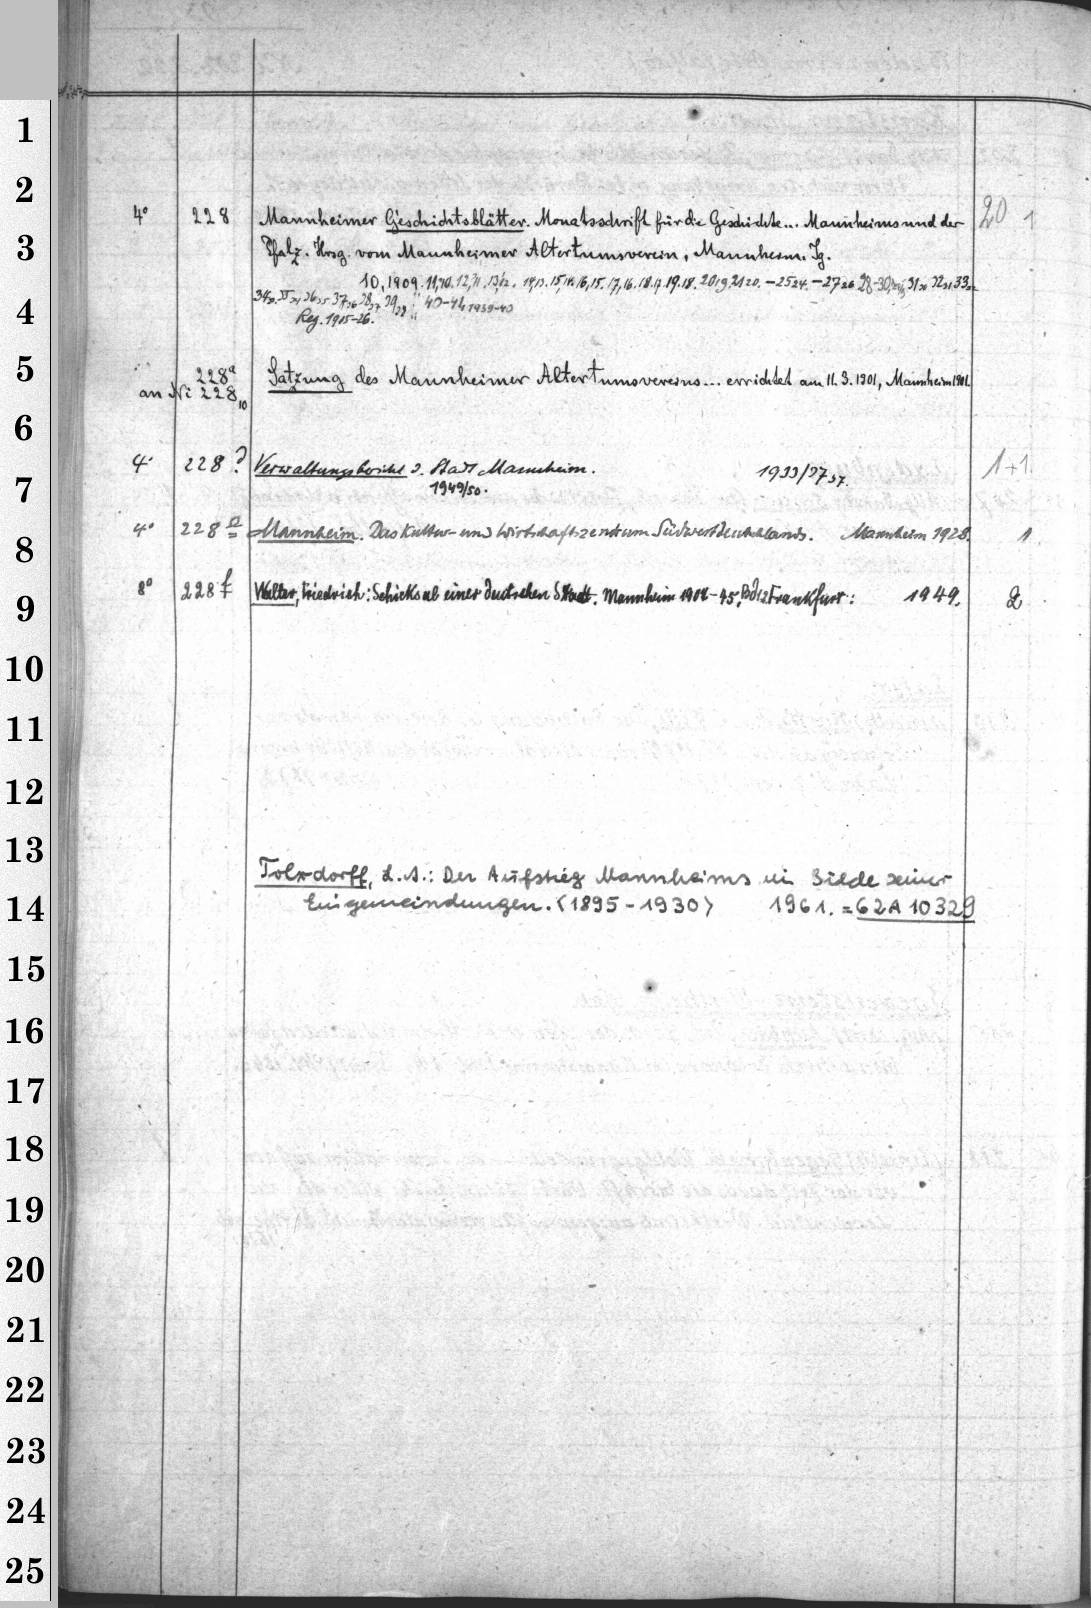 1
2
4° 228 Mannheimer Geschichtsblätter. Monatsschrift für die Geschichte... Mannheims und der 20 1
3
Pfalz. Hrsg. vom Mannheimer Altertumsverein, Mannheim. Jg.
10, 1909. 11,10. 12,11. 13,12. 14,13. 15,14. 16,15. 17,16. 18.17. 19.18. 20 19. 21 20. – 25 24. – 27 26
4
40–41 1939–40
Reg. 1905–26.
5
228a Satzung des Mannheimer Altertumsvereins... errichtet am 11. 3. 1901, Mannheim 1901.
an Ni 228,10
6
4° 228 d Verwaltungsbericht d. Stadt Mannheim. 1933/37 1+1
7
1949/50.
4° 228 e Mannheim. Das Kultur- und Wirtschaftszentrum Südwestdeutschlands. Mannheim 1928. 1
8
8° 228 f Walter, Friedrich: Schicksal einer deutschen Stadt. Mannheim 1907–45, Bd 1.2 Frankfurt: 1949. 2
9
10
11
12
13
Tolxdorff, L. A.: Der Aufstieg Mannheims im Bilde seiner
14
Eingemeindungen. <1895–1930> 1961. = 62 A 10329
15
16
17
18
19
20
21
22
23
24
25